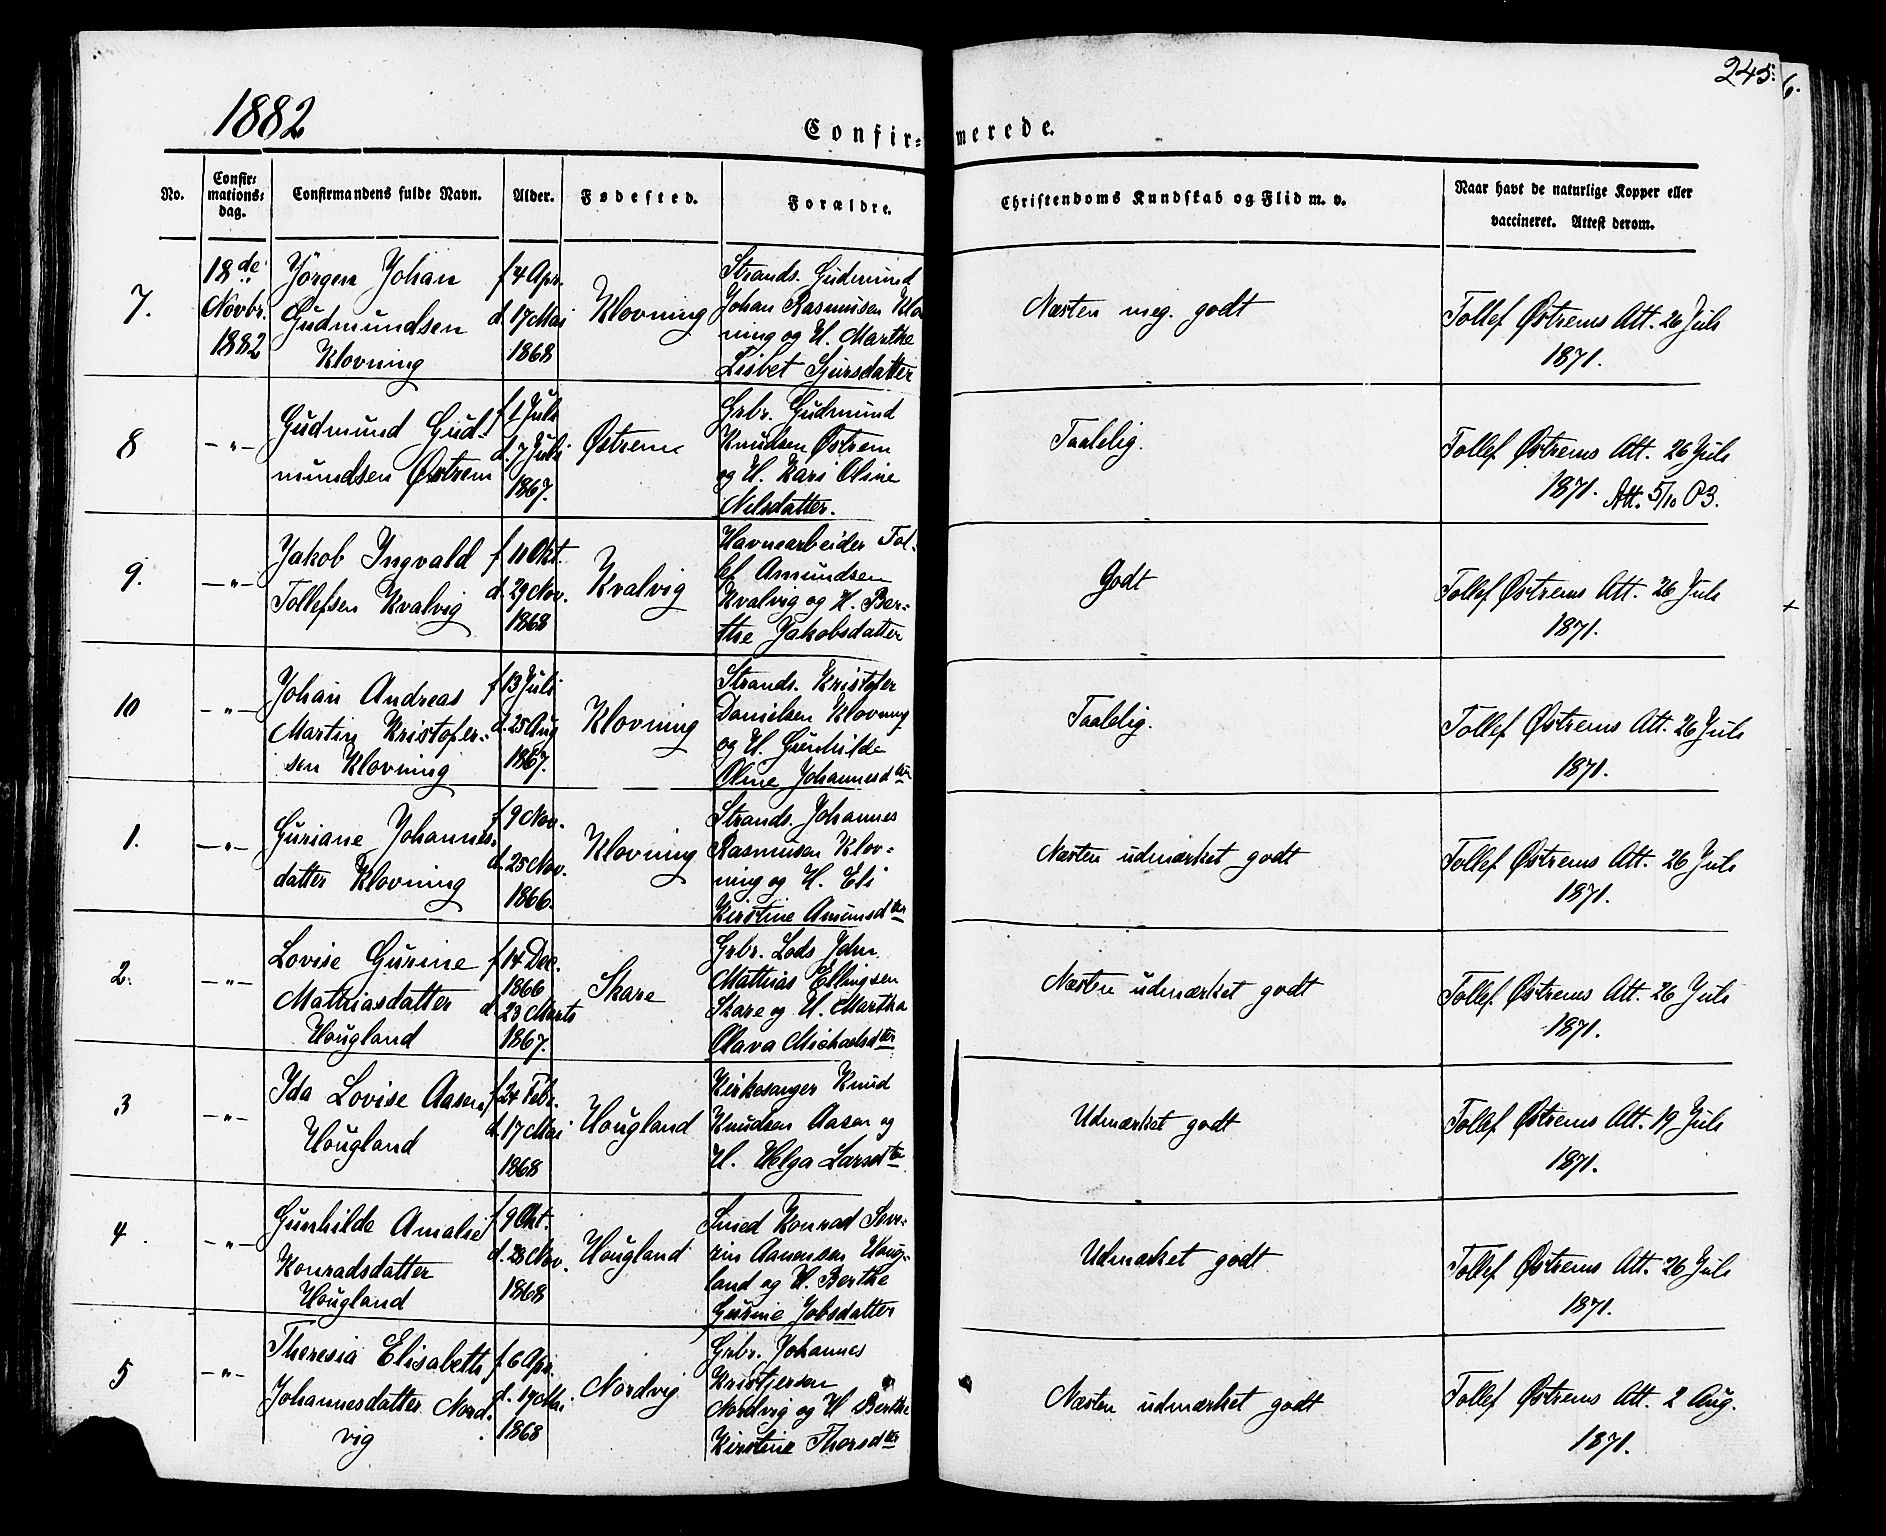 245. 6.
1882
Confir= merede.
No.
Confir=
mations=
dag.
Confirmandens fulde Navn.
Alder.
Fødested.
Forældre.
Christendoms Kundskab og Flid m. v.
Naar havt de naturlige Kopper eller
vaccineret. Attest derom.
7.
18de
Novbr.
1882
Jörgen Johan
Gudmundsen
Klovning
f 4 Apr.
d. 17 Mai
1868
Klovning
Strands. Gudmund
Johan Rasmusen Klo
ning og H. Marthe
Lisbet Sjursdatter
Næsten meg. godt
Tollef Østrems Att. 26 Juli
1871.
8
—"—
Gudmund Gud=
mundsen Østrem
f. 1 Juli
d. 7 Juli
1867.
Østrem
Grbr. Gudmund
Knudsen Østrem
og H. Kari Oline
Nilsdatter.
Taalelig.
Tollef Østrems Att. 26 Juli
1871. Att. 5/10 03.
9.
—"—
Jakob Ingvald
Tollefsen Kvalvig
f 11 Okt.
d. 29 Nov.
1868
Kvalvig
Havnearbeider Tol=
lef Amundsen
Kvalvig og H. Ber=
the Jakobsdatter
Godt
Tollef Østrems Att. 26 Juli
1871.
+
10
—"—
Johan Andreas
Martin Kristofer=
sen Klovning
f 13 Juli
d. 25 Aug
1867.
Klovning
Strands. Kristofer
Danielsen Klovning
og H. Gunhilde
Oline Johannesdter
Taalelig.
Tollef Østrems Att. 26 Juli
1871.
1.
—"—
Guriane Johannes=
datter Klovning
f 9 Nov.
d. 25 Nov.
1866.
Klovning
Strands. Johannes
Rasmusen Klov=
ning og H. Eli
Kirstine Amunsdter
Næsten udmærket godt
Tollef Østrems Att. 26 Juli
1871.
2.
—"—
Lovise Gurine
Mathiasdatter
Hougland
f 14 Dec.
1866
d. 23 Marts
1867.
Skare
Grbr. Lods John
Mathias Ellingsen
Skare og H. Martha
Olava Michaelsdter
Næsten udmærket godt
Tollef Østrems Att. 26 Juli
1871.
3
—"—
Ida Lovise Aasen
Hougland
f. 24 Febr.
d. 17 Mai
1868
Hougland
Kirkesanger Knud
Knudsen Aasen og
H. Helga Larsdtr
Udmærket godt
Tollef Østrems Att. 19 Juli
1871.
4.
—"—
Gunhilde Amalie
Konradsdatter
Hougland
f 9 Okt.
d. 28 Nov.
1868
Hougland
Smed Konrad Seve=
rin Aanensen Houg=
land og H. Berthe
Gurine Jobsdatter
Udmærket godt
Tollef Østrems Att. 26 Juli
1871.
5
—"—
Theresia Elisabeth
Johannesdatter Nord=
vig
f. 6 Apr.
d. 19 Mai
1868
Nordvig
Grbr. Johannes
Kristjersen
Nordvig og H Berthe
Kirstine Thorsdter
Næsten udmærket godt
Tollef Østrems Att. 2 Aug.
1871.